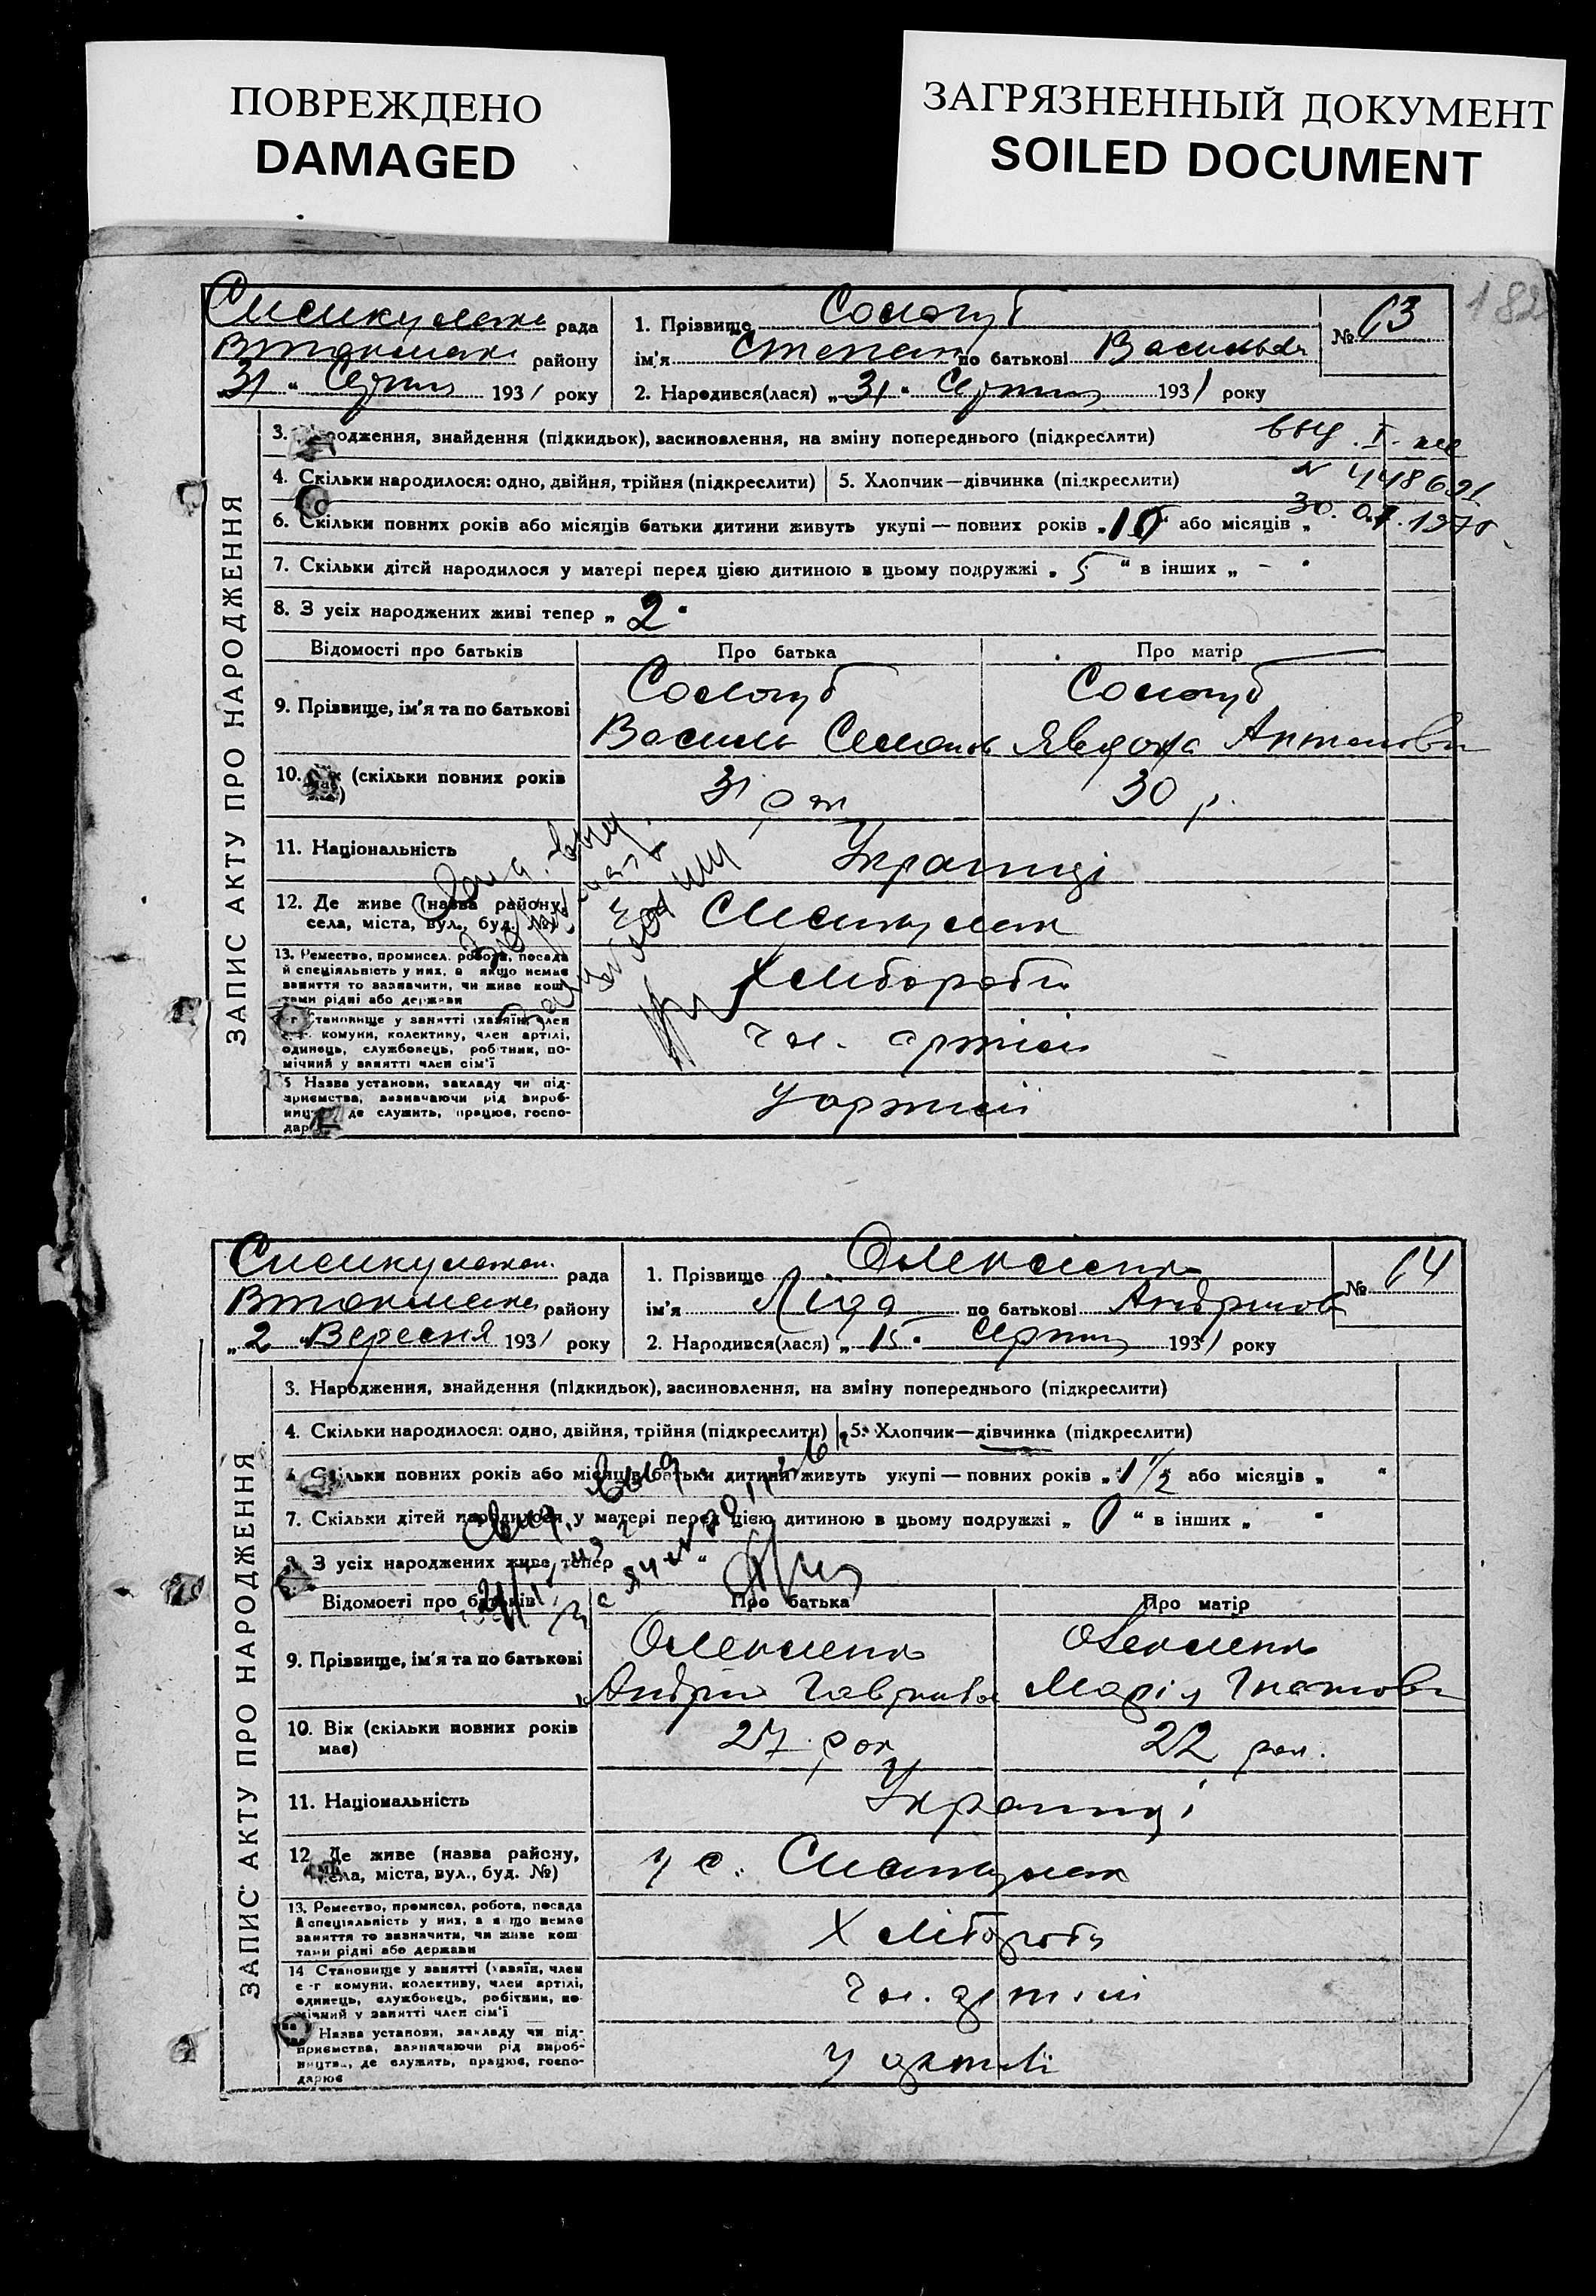 ПОВРЕЖДЕНО
DAMAGED
ЗАГРЯЗНЕННЫЙ ДОКУМЕНТ
SOILED DOCUMENT
182
рада
району
31 Серпня 1931 року
1. Прізвище Сологуб
ім'я Степан по батькові Васильов
2. Народився(лася) „31" Серпня 1931 року
№ 63
ЗАПИС АКТУ ПРО НАРОДЖЕННЯ
3. Народження, знайдення (підкидьок), засиновлення, на зміну попереднього (підкреслити)
4. Скільки народилося: одно, двійня, трійня (підкреслити) 5. Хлопчик—дівчинка (підкреслити)
N 448691
6. Скільки повних років або місяців батьки дитини живуть укупі — повних років „10" або місяців „
7. Скільки дітей народилося у матері перед цією дитиною в цьому подружжі „5" в інших „ - "
8. З усіх народжених живі тепер „2"
Відомості про батьків Про батька Про матір
9. Прізвище, ім'я та по батькові
Сологуб Сологуб
Василь Семенов Явдоха Антонівн
10. Вік (скільки повних років має)
31 рок 30 р.
11. Національність
Українці
12. Де живе (назва району, села, міста, вул., буд. №)
13. Ремество, промисел, робота, посада
й спеціяльність у них, а якщо немає
заняття то зазначити, чи живе кош-
тами рідні або держави
Хлібороби
14. Становище у занятті (хазяїн, член
с.-г. комуни, колективу, член артілі,
одинець, службовець, робітник, по-
мічний у занятті член сім'ї
Чл. артілі
15 Назва установи, закладу чи під-
приємства, зазначаючи рід вироб-
ництва, де служить, працює, госпо-
дарює
У артілі
рада
району
„2" Вересня 1931 року
1. Прізвище Олексієнко
ім'я Ліда по батькові Андріївн
2. Народився(лася) „15" Серпня 1931 року
№ 64
ЗАПИС АКТУ ПРО НАРОДЖЕННЯ
3. Народження, знайдення (підкидьок), засиновлення, на зміну попереднього (підкреслити)
4. Скільки народилося: одно, двійня, трійня (підкреслити) 5. Хлопчик—дівчинка (підкреслити)
6. Скільки повних років або місяців батьки дитини живуть укупі — повних років „1 1/2" або місяців „ "
7. Скільки дітей народилося у матері перед цією дитиною в цьому подружжі „0" в інших „ "
8. З усіх народжених живе тепер "
Відомості про батьків Про батька Про матір
9. Прізвище, ім'я та по батькові
Олексієнко Олексієнко
Андрій Гаврилов Марія Гнатовн
10. Вік (скільки повних років має)
27 рок 22 рок.
11. Національність
Українці
12. Де живе (назва району, села, міста, вул., буд. №)
у с.
13. Ремество, промисел, робота, посада
й спеціяльність у них, а якщо немає
заняття то зазначити, чи живе кош-
тами рідні або держави
Хлібороби
14 Становище у занятті (хазяїн, член
с.-г. комуни, колективу, член артілі,
одинець, службовець, робітник, по-
мічний у занятті член сім'ї
Чл. артілі
Назва установи, закладу чи під-
приємства, зазначаючи рід вироб-
ництва, де служить, працює, госпо-
дарює
у артілі